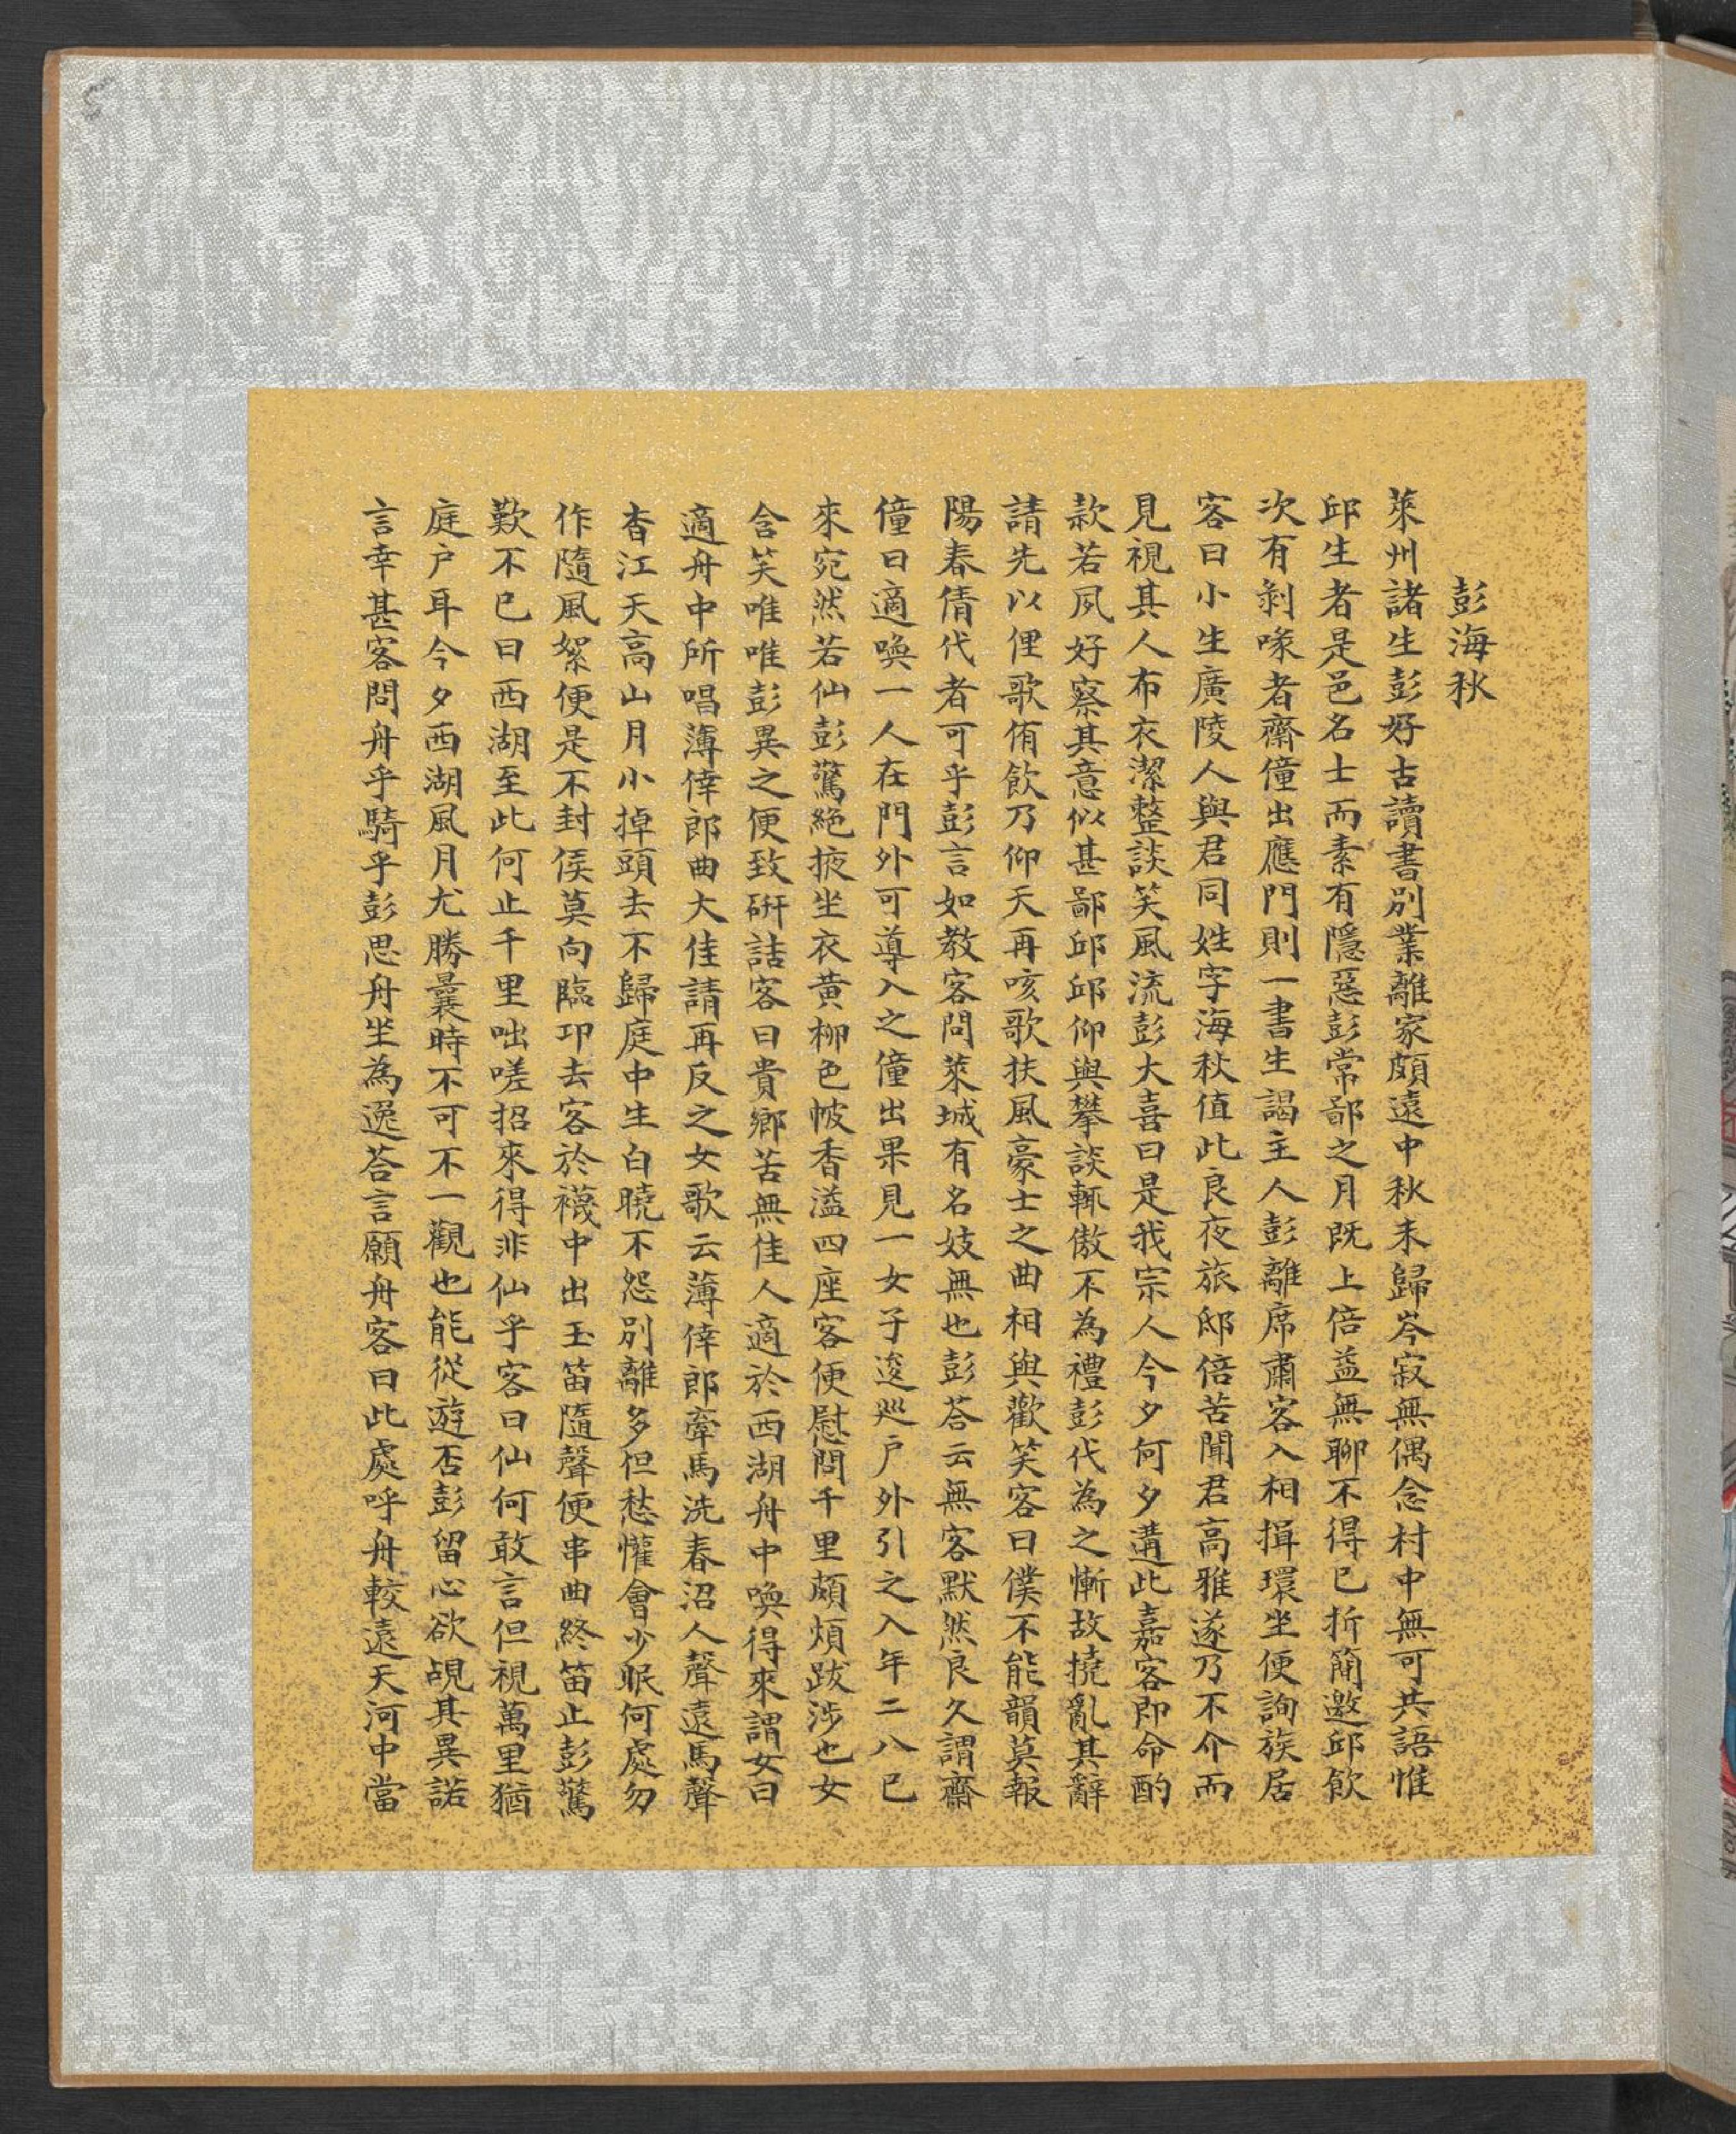 彭海秋
萊州諸生彭好古讀書別業離家頗遠中秋未歸岑寂無偶念村中無可共語惟
邱生者是邑名士而素有隱惡彭常鄙之月既上倍益無聊不得已折簡邀邱飲
次有剝喙者齋僮出應門則一書生謁主人彭離席肅客入相揖環坐便詢族居
客曰小生廣陵人與君同姓字海秋值此良夜旅邸倍苦聞君高雅遂乃不介而
見視其人布衣潔整談笑風流彭大喜曰是我宗人今夕何夕遘此嘉客即命酌
款若夙好察其意似甚鄙邱邱仰與攀談輒傲不為禮彭代為之慚故撓亂其辭
請先以俚歌侑飲乃仰天再咳歌扶風豪士之曲相與歡笑客曰僕不能韻莫報
陽春倩代者可乎彭言如教客問萊城有名妓無也彭荅云無客默然良久謂齋
僮曰適喚一人在門外可導入之僮出果見一女子逡巡户外引之入年二八已
來宛然若仙彭驚絕掖坐衣黃柳色帔香溢四座客便慰問千里頗煩跋涉也女
含笑唯唯彭異之便致研詰客曰貴鄉苦無佳人適於西湖舟中喚得來謂女曰
適舟中所唱薄倖郎曲大佳請再反之女歌云薄倖郎牽馬洗春沼人聲遠馬聲
杳江天高山月小掉頭去不歸庭中生白曉不怨別離多但愁懽會少眠何處勿
作隨風絮便是不封侯莫向臨邛去客於襪中出玉笛隨聲便串曲終笛止彭驚
歎不已曰西湖至此何止千里咄嗟招來得非仙乎客曰仙何敢言但視萬里猶
庭户耳今夕西湖風月尤勝曩時不可不一觀也能從遊否彭留心欲覘其異諾
言幸甚客問舟乎騎乎彭思舟坐為逸荅言願舟客曰此處呼舟較遠天河中當